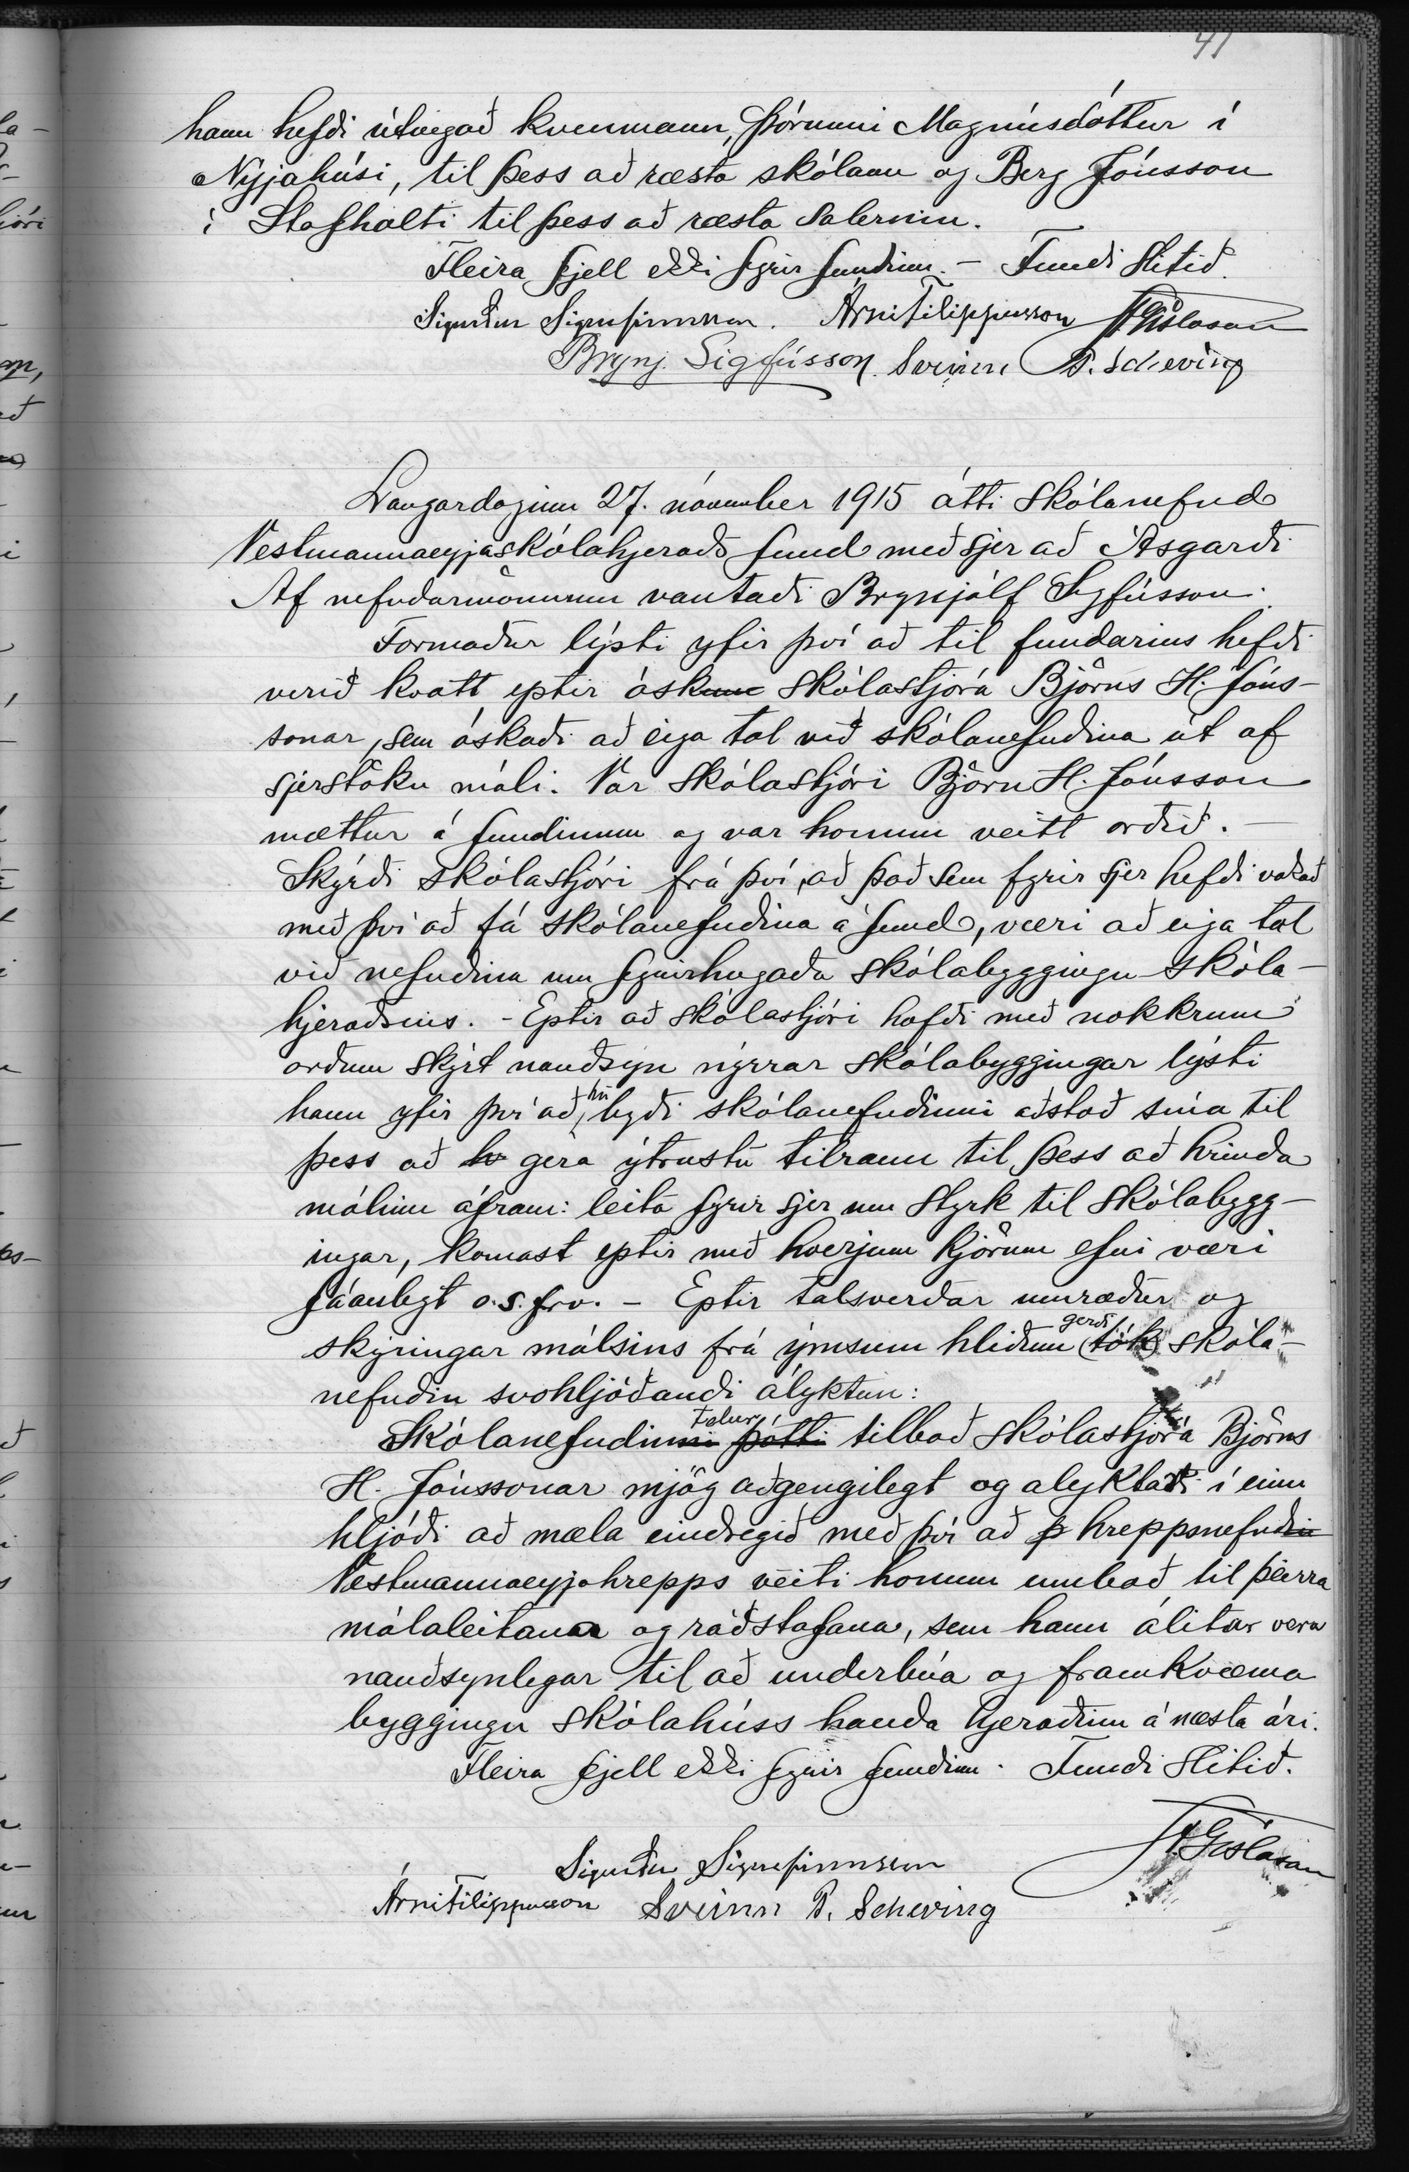 41
hann hefði útvegað kvenmann, Þórunni Magnúsdóttur í
Nýjahúsi, til þess að ræsta skólann og Berg Jónsson
í Stafholti til þess að ræsta salernin.
Fleira fjell ekki fyrir fundinn. – Fundi slitið.
Sigurður Sigurfinnsson. Árni Filippusson JGíslason
Brynj. Sigfússon. Sveinn P. Scheving
Laugardaginn 27. nóvember 1915 átti skólanefnd
Vestmannaeyjaskólahjeraðs fund með sjer að Ásgarði
Af nefndarmönnum vantaði Brynjólf Sigfússon.
Formaður lýsti yfir því að til fundarins hefði
verið kvatt eptir ósk skólastjóra Björns H. Jóns-
sonar, sem óskaði að eiga tal við skólanefndina út af
sjerstöku máli. Var skólastjóri Björn H. Jónsson
mættur á fundinum og var honum veitt orðið. –
Skýrði skólastjóri frá því, að það sem fyrir sjer hefði vakað
með því að fá skólanefndina á fund, væri að eiga tal
við nefndina um fyrirhugaða skólabyggingu skóla-
hjeraðsins. – Eptir að skólastjóri hafði með nokkrum
orðum skýrt nauðsyn nýrrar skólabyggingar lýsti
hann yfir því að hn byði skólanefndinni aðstoð sína til
þess að gera ýtrustu tilraun til þess að hrinda
málinu áfram: leita fyrir sjer um styrk til skólabygg-
ingar, komast eptir með hverjum kjörum efni væri
fáanlegt o.s.frv. – Eptir talsverðar umræður og
skýringar málsins frá ýmsum hliðum gerði (tók) skóla-
nefndin svohljóðandi ályktun:
Skólanefndinni telur þótti tilboð skólastjóra Björns
H. Jónssonar mjög aðgengilegt og alyktaði í einu
hljóði að mæla eindregið með því að þ hreppsnefndin
Vestmannaeyjahrepps veiti honum umboð til þeirra
málaleitana og ráðstafana, sem hann álitur vera
nauðsynlegar til að underbúa og framkvæma
byggingu skólahúss handa hjeraðinu á næsta ári.
Fleira fjell ekki fyrir fundinn. Fundi slitið.
JGíslason
Sigurður Sigurfinnsson
Árni Filippusson Sveinn P. Scheving